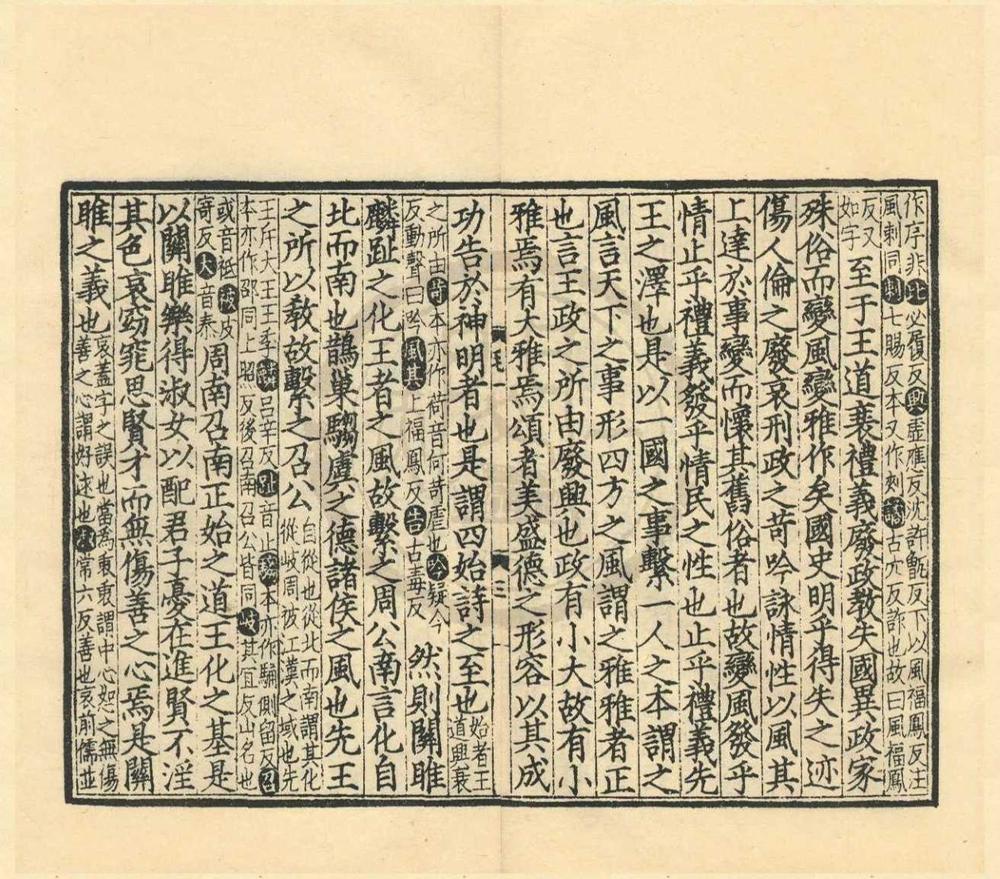 作序非比必履反興虛應反沈許甑反下以風福鳳反注
風刺同刺七賜反本又作刺譎古穴反詐也故曰風福鳳
反又
如字至于王道衰禮義廢政教失國異政家
殊俗而變風變雅作矣國史明乎得失之迹
傷人倫之廢哀刑政之苛吟詠情性以風其
上達於事變而懷其舊俗者也故變風發乎
情止乎禮義發乎情民之性也止乎禮義先
王之澤也是以一國之事繫一人之本謂之
風言天下之事形四方之風謂之雅雅者正
也言王政之所由廢興也政有小大故有小
雅焉有大雅焉頌者美盛德之形容以其成
毛一
三
功告於神明者也是謂四始詩之至也始者王
道興衰
之所由苛本亦作荷音何苛虐也吟疑今
反動聲曰吟風其上福鳳反告古毒反然則關雎
麟趾之化王者之風故繫之周公南言化自
北而南也鵲巢騶虞之德諸侯之風也先王
之所以教故繫之召公自從也從北而南謂其化
從岐周被江漢之域也先
王斥大王王季麟呂辛反趾音止騶本亦作騶側留反召
本亦作邵同上照反後召南召公皆同岐其宜反山名也
或音祗被皮
寄反大音泰周南召南正始之道王化之基是
以關雎樂得淑女以配君子憂在進賢不淫
其色哀窈窕思賢才而無傷善之心焉是關
雎之義也哀蓋字之誤也當為衷衷謂中心恕之無傷
善之心謂好逑也淑常六反善也哀前儒並